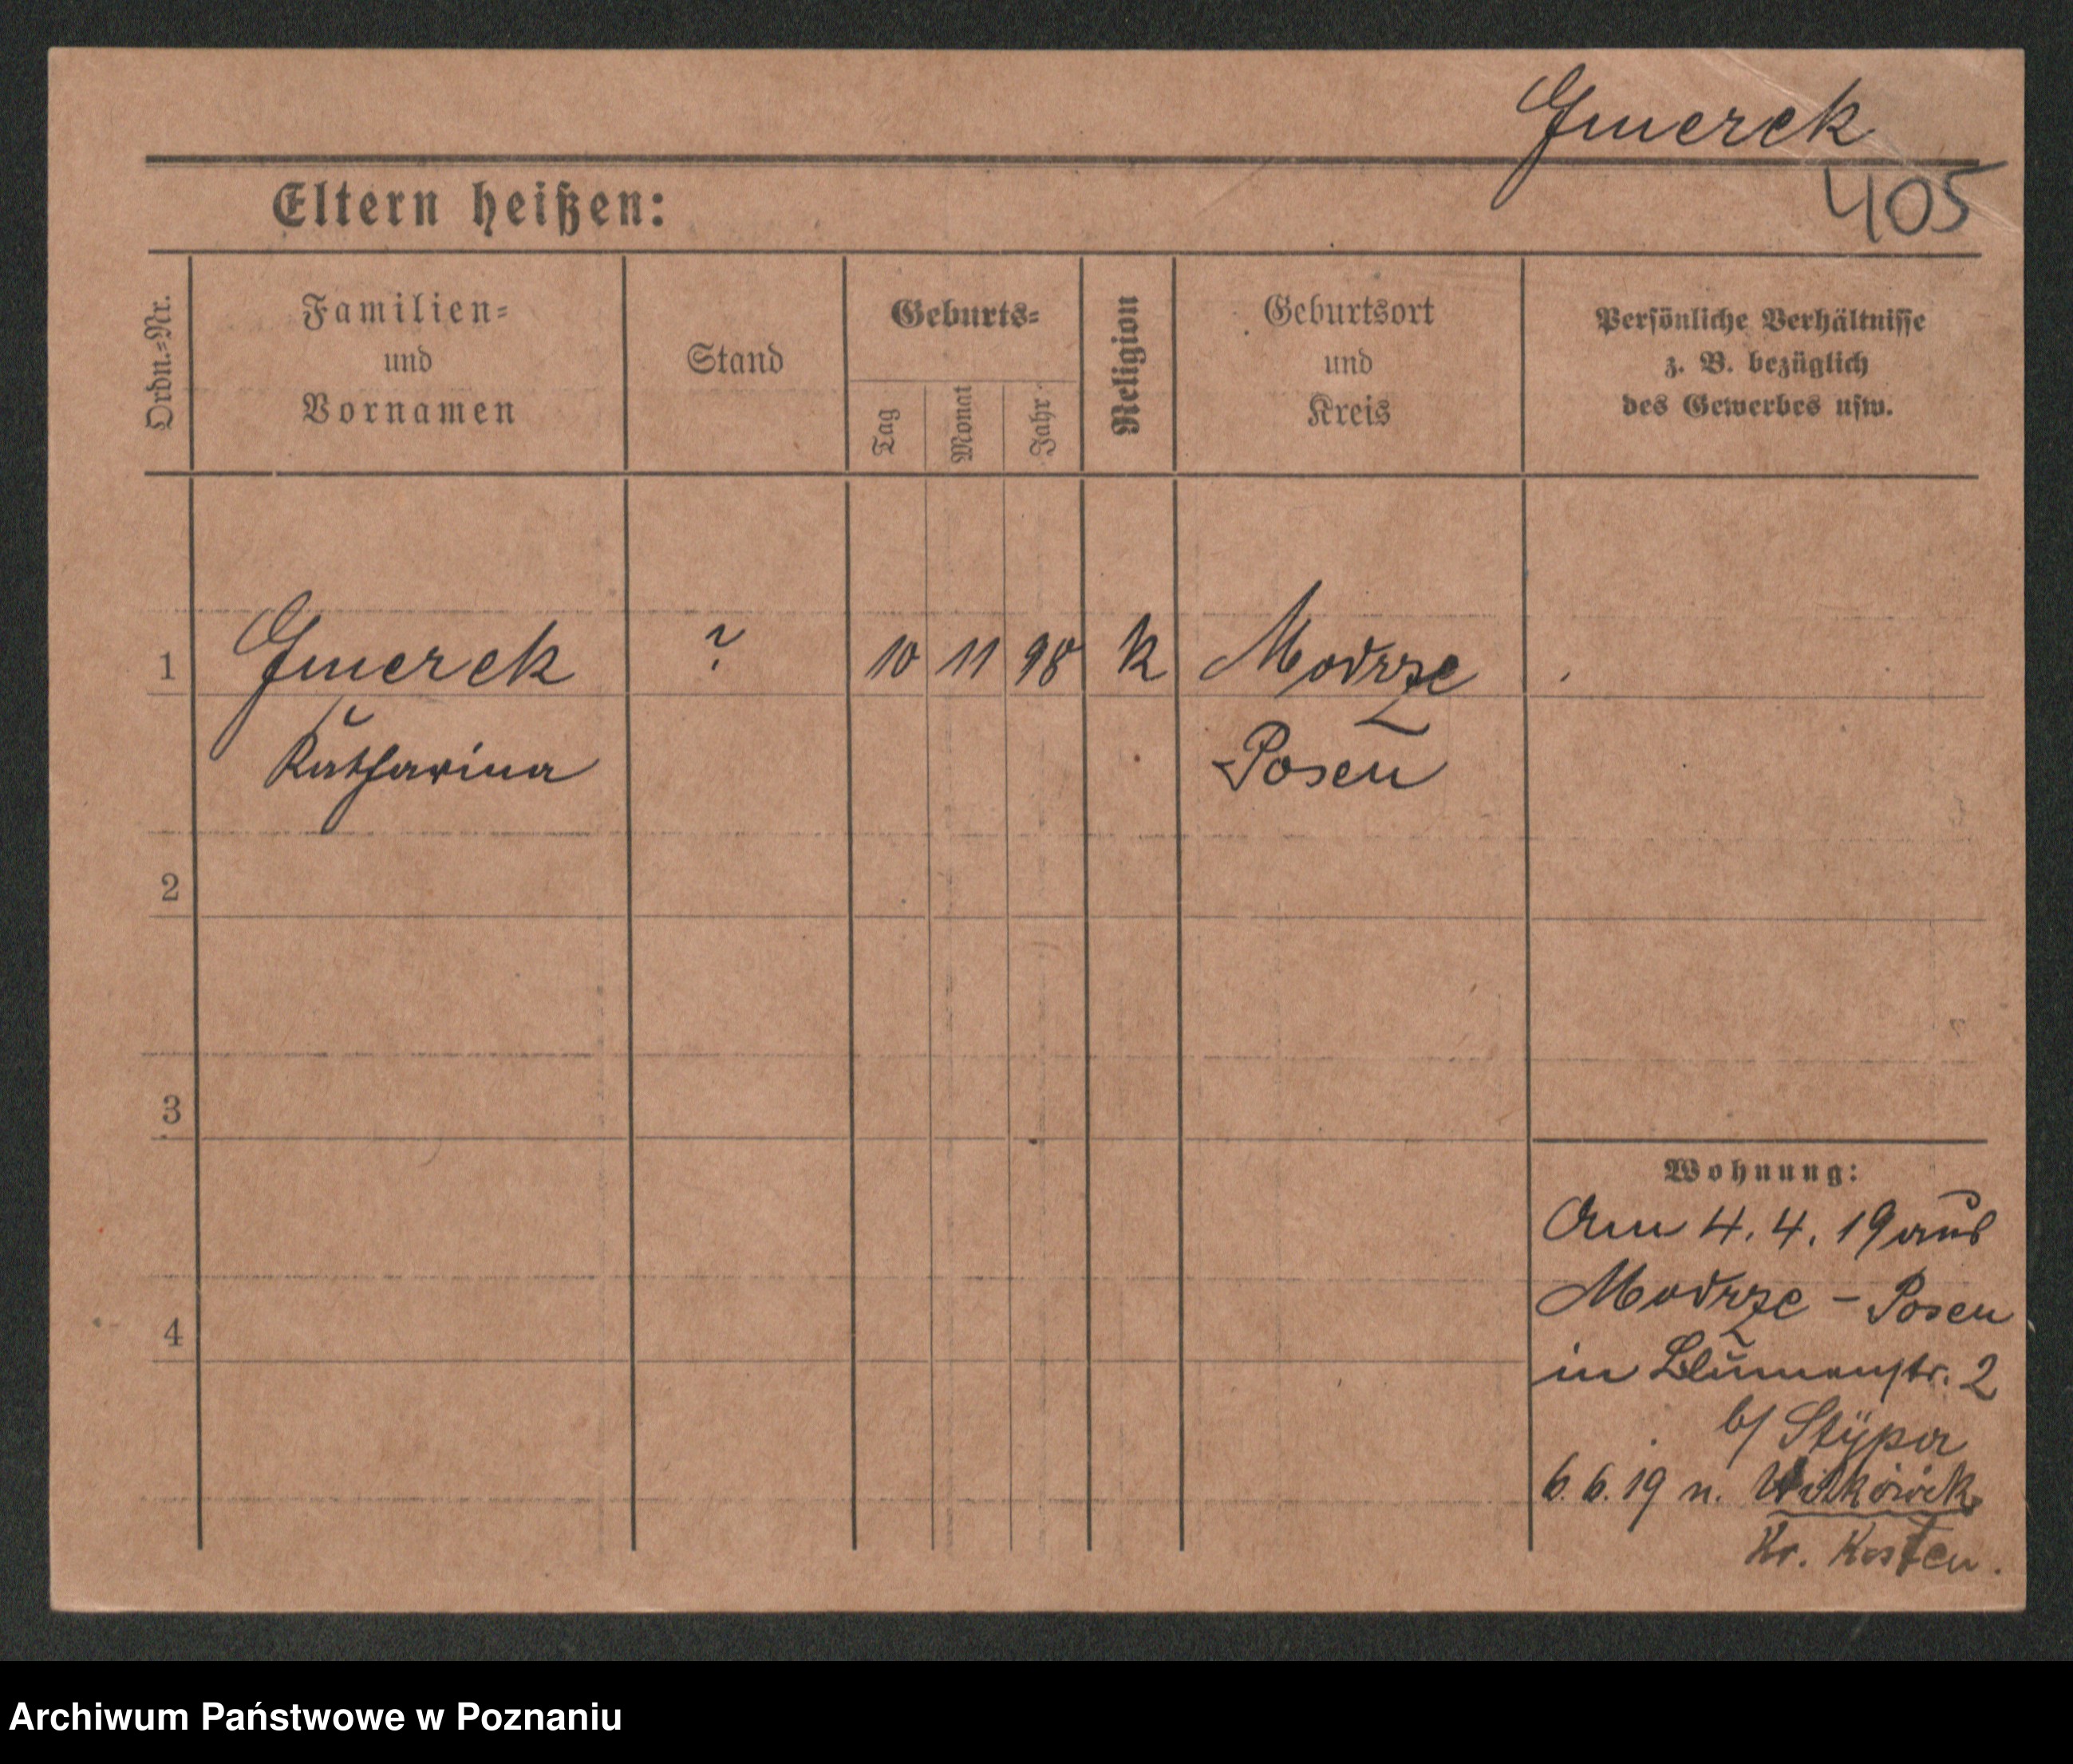 Gmerek
405
Eltern heißen:
Ordn.=Nr.
Familien=
und
Vornamen
Stand
Geburts=
Tag
Monat
Jahr
Religion
Geburtsort
und
Kreis
Persönliche Verhältnisse
z. B. bezüglich
des Gewerbes usw.
1 Gmerek ? 10 11 98 K Modrze
Katharina Posen
2
3
4
Wohnung:
Am 4. 4. 19 aus
Modrze - Posen
in Blumenstr. 2
b/ Stÿpa
6. 6. 19 n.
Kr. Kosten.
Archiwum Państwowe w Poznaniu